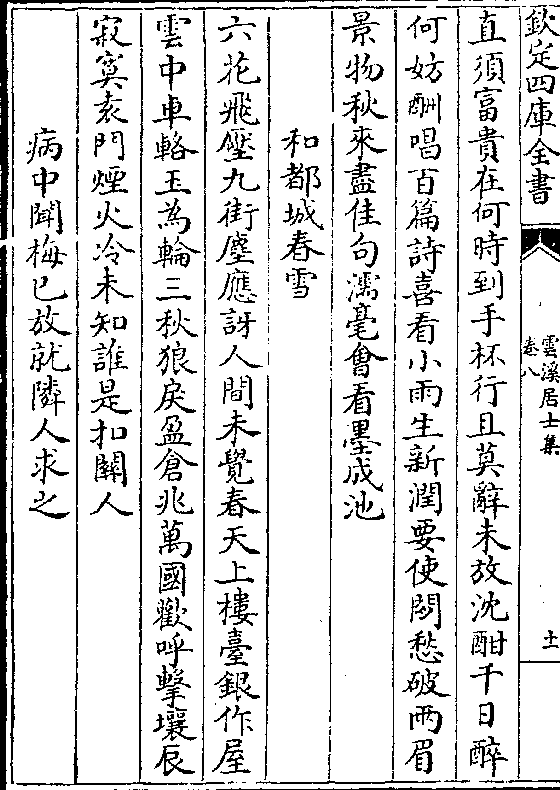 欽定四庫全書
雲溪居士集
卷八
十一
直須富貴在何時到手杯行且莫辭未放沈酣千日醉
何妨酬唱百篇詩喜看小雨生新潤要使閒愁破兩眉
景物秋來盡佳句濡毫會看墨成池
和都城春雪
六花飛壓九街塵應訝人間未覺春天上樓臺銀作屋
雲中車輅玉為輪三秋狼戾盈倉兆萬國歡呼擊壤辰
寂寞袁門煙火冷未知誰是扣關人
病中聞梅已放就隣人求之